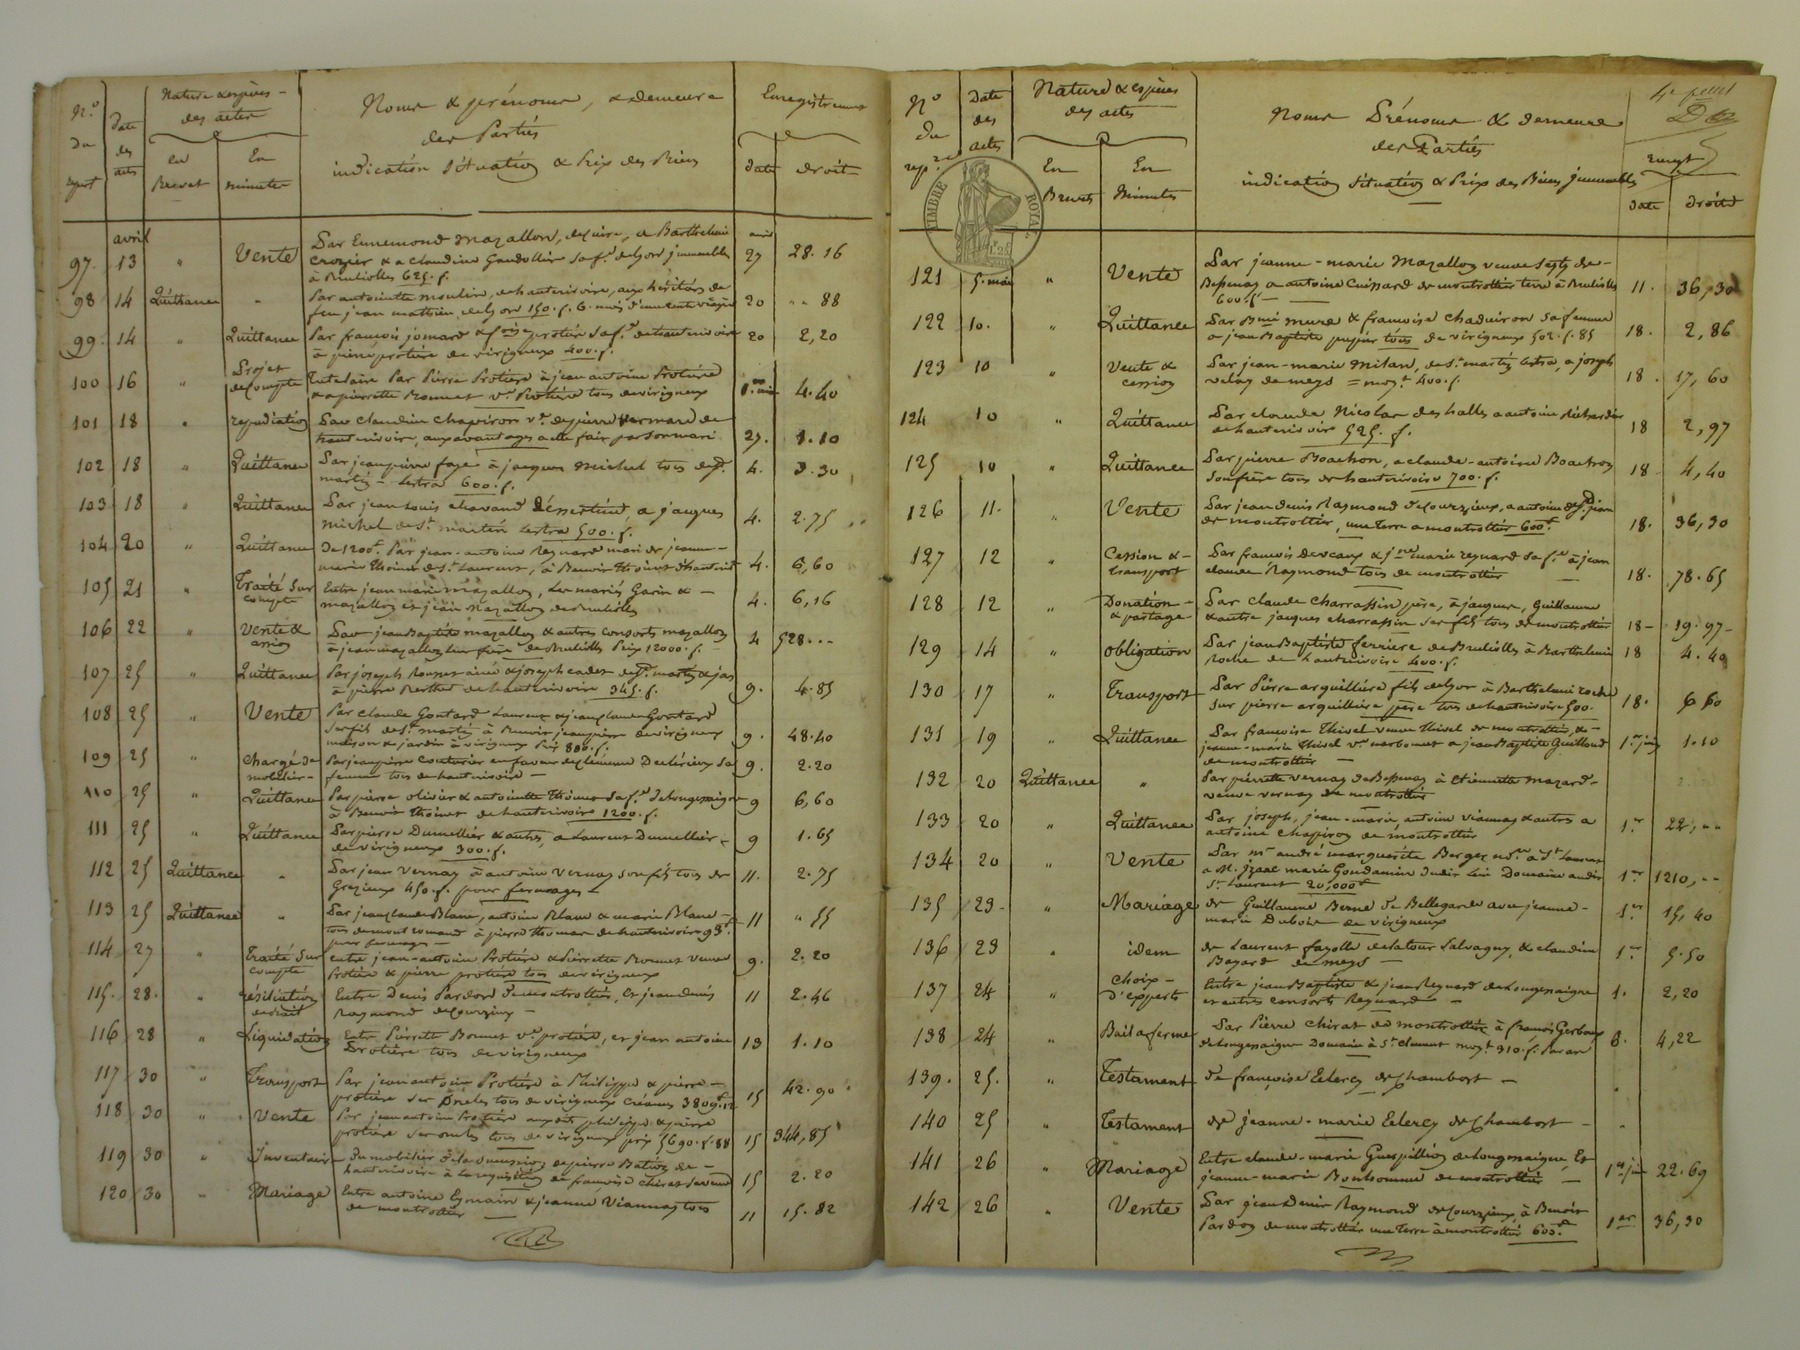 N.o
du
repert
Date
des
actes
Nature & espèces
des actes
en
Brevet
En
minutes
Noms & prénoms, & demeure
des Parties
indication Situation & Prix des Biens
Enregistrement
date
droit
avril
97. 13 " Vente Par Ennemond Mazallon, a Barthelemi
Crozier & a Claudine immeubles 27 28.16
à Brulioles 625.f.
98 14 Quittance " Par antoinette moulin, de hauterivoire, aux héritiers de
feu jean mathieu 150.f. 20 " " 88
99. 14 " Quittance Par françois jomard & protière sa f.e de hauterivoire 20 2,20
à pierre protière de virigneux 400.f.
100 16 " Projet
de Compte Tutelaire Par Pierre Protière à jean antoine Protière 1.er mai 4.40
& a pierrette Bonnet v.e Protière tous de virigneux
101 18 " repudiation Par claudine chapiron v.e de pierre de
hauterivoire, aux avantages a elle fait par son mari 27. 1.10
102 18 " Quittance Par jean pierre faye à jacques Michel tous de S.t 4. 3.30
martin-Lestra 600.f.
103 18 " Quittance Par jean Louis chavand Déssertine, a jacques
Michel de S.t martin Lestra 500.f. 4. 2.75
104 20 " Quittance De 1200.f Par jean-antoine Reynard mari de jeanne-
marie Thoinet de S.t Laurent, à Benoit Thoinet d'hauteriv. 4. 6,60
105 21 " Traité Sur
Compte Entre jean marie mazallon, Les mariés Garin & -
mazallon et jean mazallon de Brulioles 4. 6,16
106 22 " Vente &
cession Par jean Baptiste mazallon & autres consorts mazallon
à jean mazallon leur frère de Brulioles Prix 12000.f. 4 528...
107 25 " Quittance Par joseph ainé & joseph cadet de S.t martin
à pierre Berthet de hauterivoire 345.f. 9. 4.85
108 25 " Vente Par Claude Goutard Laurent & jean claude Goutard
ses fils de S.t martin à Benoit jean pierre de virigneux
maison & jardin à virigneux Prix 880.f. 9. 48.40
109 25 " Charge de
mobilier- Par jean pierre Couturier en faveur de sa
femme tous de hauterivoire - 9. 2.20
110 25 " Quittance Par pierre olivier & antoinette Thoinet sa f.e de Longessaigne
à Benoit Thoinet de hauterivoire 1200.f. 9 6,60
111 25 " Quittance Par pierre Dumellier & autres, a Laurent Dumellier
de virigneux 300.f. 9 1.65
112 25 Quittance " Par jean Vernay à antoine Vernay son fils tous de
Grezieux 450.f. pour fermages - 11. 2.75
113 25 Quittance " Par jean claude Blanc, antoine Blanc & marie Blanc
tous de mont romand à pierre thomas de hauterivoire 93.f
pour fermages - 11 " 55
114 27 " Traité Sur
Compte entre jean-antoine Protière & Pierrette Bonnet veuve
Protière & pierre protière tous de virigneux 9. 2.20
115. 28. " résiliation Entre Denis Pardon de montrottier, et jean denis
Raymond de Courzieux - 11 2.46
116 28 " Liquidation Entre Pierrette Bonnet v.e protière, et jean antoine
Protière tous de virigneux 13 1.10
117 30 " Transport Par jean antoine Protière à Philippe & pierre -
protière ses oncles tous de virigneux Créances 3809.f.12 15 42.90
118 30 " Vente Par jean antoine Protière aux dits philippe & pierre
protière ses oncles tous de virigneux prix 5690.f.88 15 344,85
119 30 " Inventaire Du mobilier de la Succession de pierre Bation de -
hauterivoire à la requisition de françoise chirat sa veuve 15 2.20
120 30 " Mariage Entre antoine Eymain & jeanne Viannay tous
de montrottier 11 15.82
N.o
du
rep.re
Date
des
actes
Nature & espèces
des actes
En
Brevets
En
Minutes
Noms Prénoms & demeure
des Parties
indication Situation & Prix des Biens immeubles
4e feuillet
Enregt
date
droits
TIMBRE ROYAL
121 5. mai " Vente Par jeanne-marie Mazallon veuve de -
Bessenay a antoine Cuissard de montrottier terre à Brulioles 11. 36,30
600.f. -
122 10. " Quittance Par B.mi mure & françoise Chaduiron sa femme
a jean Baptiste tous de virigneux 502.f.85 18. 2,86
123 10 " Vente &
cession Par jean-marie Milan, de S.t martin Lestra, a joseph
velay de meys = moy.t 400.f. 18. 17,60
124 10 " Quittance Par claude Nicolas des halles a antoine Richardier
de hauterivoire 525.f. 18 2,97
125 10 " Quittance Par pierre Boachon, a claude-antoine Boachon
Son frère tous de hauterivoire 700.f. 18 4,40
126 11. " Vente Par jean denis Raymond de Courzieux, a antoine
de montrottier, une terre a montrottier 600.f 18. 36,30
127 12 " Cession & -
transport Par françois devaux & j.ne marie reynard sa f.e à jean
claude Raymond tous de montrottier 18. 78.65
128 12 " Donation -
& partage - Par claude Charrassin père, à jacques, Guillaume
& autre jacques charrassin ses fils tous de montrottier 18- 19.97-
129 14 " Obligation Par jean Baptiste ferrière de Brulioles à Barthelemi
roche de hauterivoire 400.f. 18 4.40
130 17 " Transport Par Pierre arquillière fils de Lyon à Barthelemi roche
Sur pierre arquillière père tous de hauterivoire 500. 18. 6 60
131 19 " Quittance Par françoise Thivel veuve Thivel de montrottier, & -
jeanne-marie Thivel v.e narbonnet a jean Baptiste Guilloud
de montrottier - 1.er juin 1.10
132 20 Quittance " Par pierrette vernay de Bessenay à Etiennette Mazard-
veuve vernay de montrottier
133 20 " Quittance Par joseph, jean-marie antoine viannay & autres a
antoine Chapiron de montrottier 1.er 22,..
134 20 " Vente Par m.r andré marguerite Berger n.re a S.t Laurent
a M. Izaac marie Goudamin Domaine audit
S.t Laurent 20,000.f 1.er 1210,..
135 23- " Mariage de Guillaume Berne de Bellegarde avec jeanne-
marie Dubois de virigneux 1.er 15,40
136 23 " idem de Laurent fayolle de Latour Salvagny, & claudine
Bayard de meys - 1.er 5.50
137 24 " Choix -
D'experts Entre jean Baptiste & jean Reynard de Longessaigne
et autres consorts Reynard - 1. 2,20
138 24 " Bail a ferme Par Pierre Chirat de montrottier à françois Gerboux
de Longessaigne Domaine à S.t clement moy.t 310.f. Par an 6. 4,22
139. 25. " Testament de françoise Eclercy de Chambost -
140 25 " Testament de jeanne-marie Eclercy de Chambost -
141 26 " Mariage Entre claude-marie Guespillion de Longessaigne, Et
jeanne-marie Bonhomme de montrottier - 1.er juin 22.69
142 26 " Vente Par jean Denis Raymond de Courzieux, à Benoit
Pardon de montrottier une terre à montrottier 605.f 1er 36,30